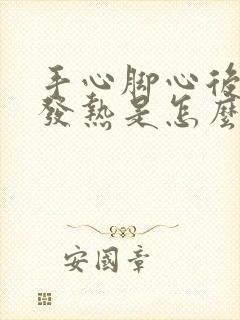 手心脚心後
發熱是怎麼
安國章